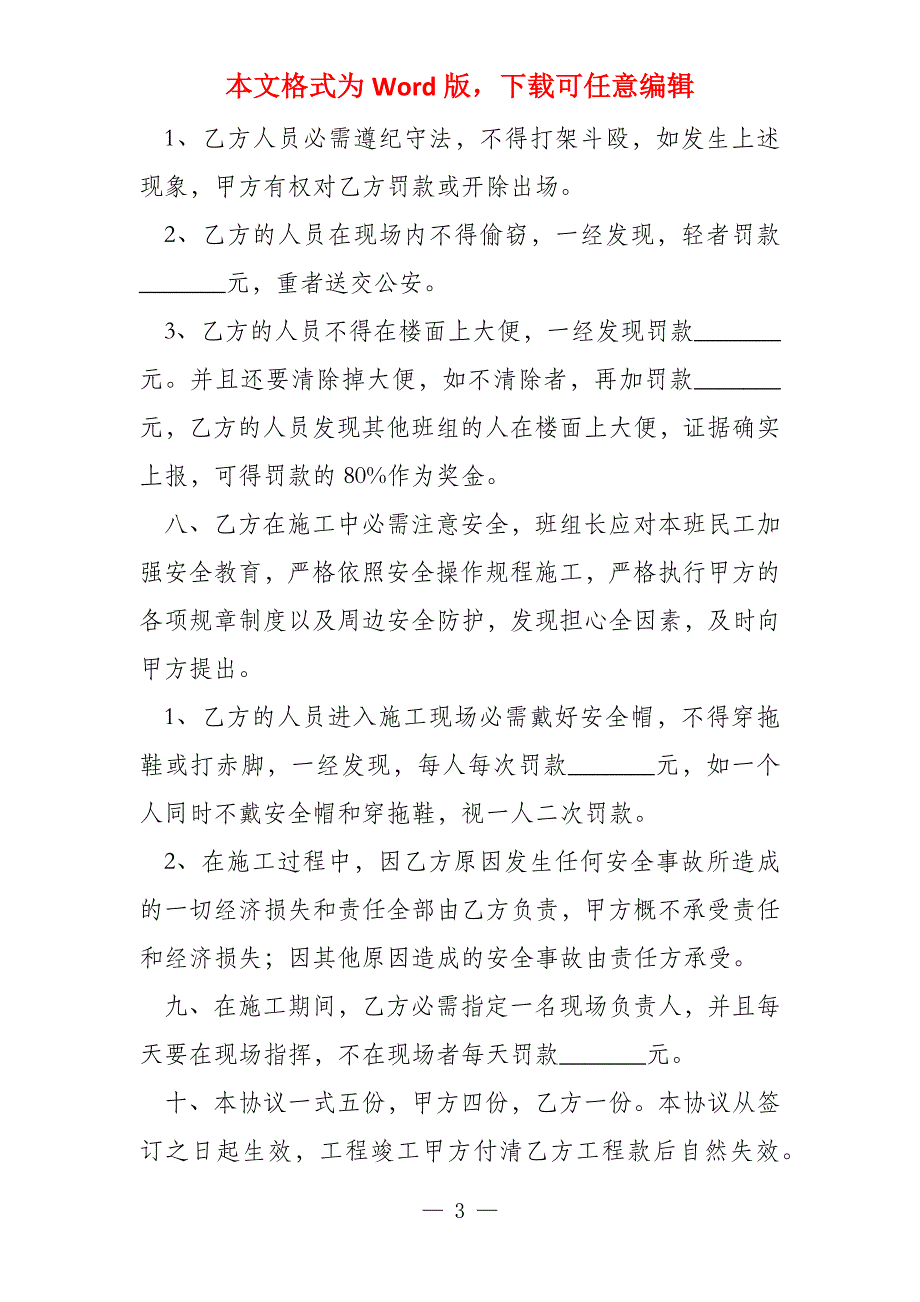 本文格式为 Word 版，下载可任意编辑
1、乙方人员必需遵纪守法，不得打架斗殴，如发生上述
现象，甲方有权对乙方罚款或开除出场。
2、乙方的人员在现场内不得偷窃，一经发现，轻者罚款
_______元，重者送交公安。
3、乙方的人员不得在楼面上大便，一经发现罚款_______
元。并且还要清除掉大便，如不清除者，再加罚款_______
元，乙方的人员发现其他班组的人在楼面上大便，证据确实
上报，可得罚款的 80%作为奖金。
八、乙方在施工中必需注意安全，班组长应对本班民工加
强安全教育，严格依照安全操作规程施工，严格执行甲方的
各项规章制度以及周边安全防护，发现担心全因素，及时向
甲方提出。
1、乙方的人员进入施工现场必需戴好安全帽，不得穿拖
鞋或打赤脚，一经发现，每人每次罚款_______元，如一个
人同时不戴安全帽和穿拖鞋，视一人二次罚款。
2、在施工过程中，因乙方原因发生任何安全事故所造成
的一切经济损失和责任全部由乙方负责，甲方概不承受责任
和经济损失；因其他原因造成的安全事故由责任方承受。
九、在施工期间，乙方必需指定一名现场负责人，并且每
天要在现场指挥，不在现场者每天罚款_______元。
十、本协议一式五份，甲方四份，乙方一份。本协议从签
订之日起生效，工程竣工甲方付清乙方工程款后自然失效。
— 3 —